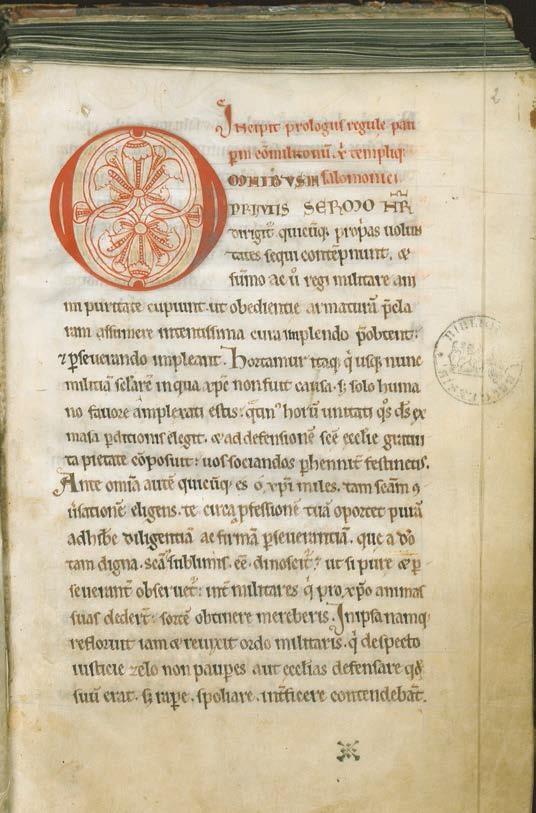 2
Incipit prologus regule pau
perũ cõmilitonũ. X̃ templiq;
OMNIBVS IN salomonici
PRIMIS SERMO NR̃
dirigit᷑ quicũq; p̃prias volun
tates sequi contẽpnunt. &
sũmo ac ů regi militare ani
mi puritate cupiunt. ut obedientie armaturã p̃cla
ram assumere intentissima cura implendo p̃obtent.
& ꝑseuerando impleant. Hortamur itaq; q̇ usq; nunc
militiã sc̃larẽ in qua xp̃c non fuit causa. sȝ solo huma
no fauore amplexati estis. q̃tin᷒ horũ unitati q̃s d̃s ex
massa ꝑditionis elegit. & ad defensionẽ sc̃e ecc̃lie gratui
ta pietate cõposuit. uos sociandos ꝑhenniť festinetis.
Ante om̃ia autẽ quicũq; es o xp̃i miles. tam sc̃am ꝯ
ůsationẽ eligens. te circa ꝓfessionẽ tuã oportet purã
adhibe diligentiã ac firmã ꝑseuerantiã. que a dõ
tam digna. sc̃a sublimis. eẽ dinoscit᷑. ut si pure & ꝑ
seuerant̃ obseruet᷑. int̃ militares q̇ pro xp̃o animas
suas dedert̃. sortẽ obtinere mereberis. In ipsa namq;
refloruit iam & reuixit ordo militaris. q̇ despecto
iusticie zelo non pauꝑes aut ecc̃lias defensare q̃d
suũ erat. sȝ raꝑe. spoliare. int̃ficere contendebãt.